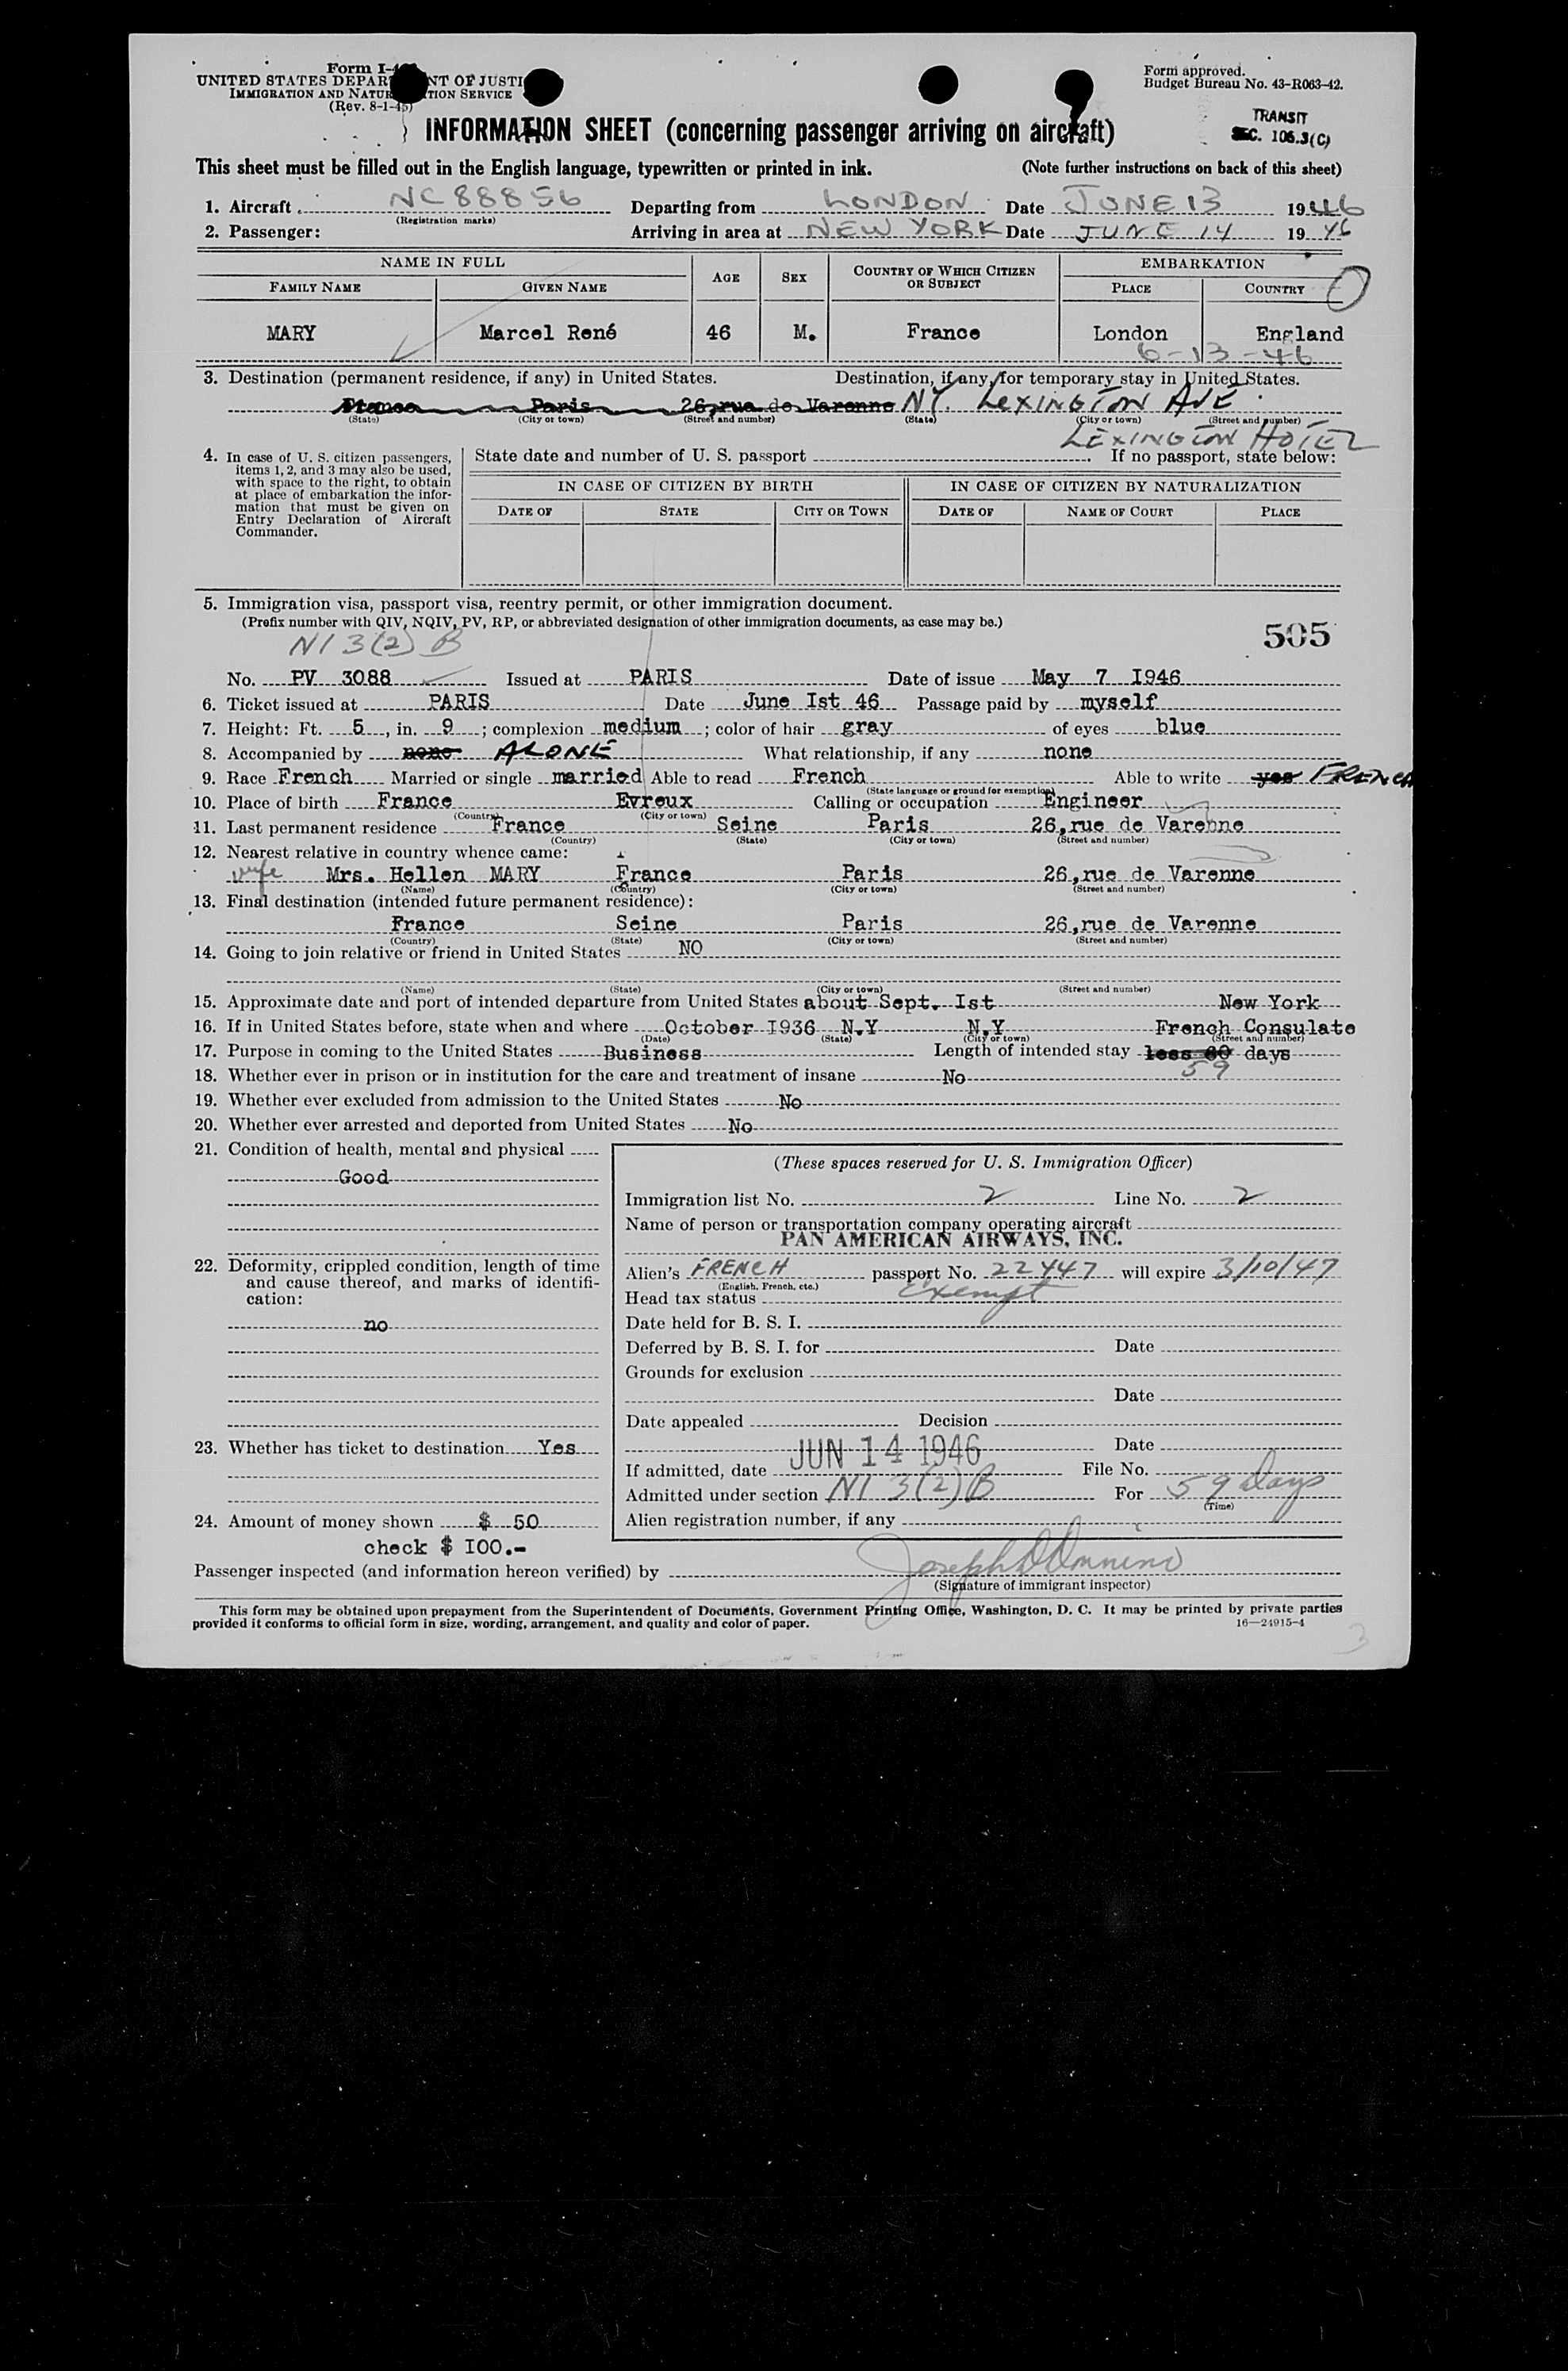 Form I-4
UNITED STATES DEPAR NT OF JUSTI
IMMIGRATION AND NATUR TION SERVICE
(Rev. 8-1-45)
Form approved.
Budget Bureau No. 43-R063-42.
TRANSIT
SEC. 106.3(C)
INFORMATION SHEET (concerning passenger arriving on aircraft)
This sheet must be filled out in the English language, typewritten or printed in ink. (Note further instructions on back of this sheet)
1. Aircraft NC 88856 Departing from LONDON Date JUNE 13 1946
(Registration marks)
2. Passenger: Arriving in area at NEW YORK Date JUNE 14 1946
NAME IN FULL AGE SEX COUNTRY OF WHICH CITIZEN OR SUBJECT EMBARKATION
FAMILY NAME GIVEN NAME PLACE COUNTRY
MARY Marcel René 46 M. France London England
6-13-46
3. Destination (permanent residence, if any) in United States. Destination, if any, for temporary stay in United States.
France Paris 26,rue de Varenne NY. LEXINGTON AVE
(State) (City or town) (Street and number) (State) (City or town) (Street and number)
LEXINGTON HOTEL
4. In case of U. S. citizen passengers, items 1, 2, and 3 may also be used, with space to the right, to obtain at place of embarkation the information that must be given on Entry Declaration of Aircraft Commander.
State date and number of U. S. passport If no passport, state below:
IN CASE OF CITIZEN BY BIRTH IN CASE OF CITIZEN BY NATURALIZATION
DATE OF STATE CITY OR TOWN DATE OF NAME OF COURT PLACE
5. Immigration visa, passport visa, reentry permit, or other immigration document.
(Prefix number with QIV, NQIV, PV, RP, or abbreviated designation of other immigration documents, as case may be.)
505
NI 3(2) B
No. PV 3088 Issued at PARIS Date of issue May 7 I946
6. Ticket issued at PARIS Date June Ist 46 Passage paid by myself
7. Height: Ft. 5, in. 9; complexion medium; color of hair gray of eyes blue
8. Accompanied by none ALONE What relationship, if any none
9. Race French Married or single married Able to read French Able to write yes FRENCH
(State language or ground for exemption)
10. Place of birth France Evreux Calling or occupation Engineer
(Country) (City or town)
11. Last permanent residence France Seine Paris 26,rue de Varenne
(Country) (State) (City or town) (Street and number)
12. Nearest relative in country whence came:
wife Mrs. Hellen MARY France Paris 26,rue de Varenne
(Name) (Country) (City or town) (Street and number)
13. Final destination (intended future permanent residence):
France Seine Paris 26,rue de Varenne
(Country) (State) (City or town) (Street and number)
14. Going to join relative or friend in United States NO
(Name) (State) (City or town) (Street and number)
15. Approximate date and port of intended departure from United States about Sept. Ist New York
16. If in United States before, state when and where October I936 N.Y N.Y French Consulate
(Date) (State) (City or town) (Street and number)
17. Purpose in coming to the United States Business Length of intended stay less 60 days
59
18. Whether ever in prison or in institution for the care and treatment of insane No
19. Whether ever excluded from admission to the United States No
20. Whether ever arrested and deported from United States No
21. Condition of health, mental and physical
Good
22. Deformity, crippled condition, length of time and cause thereof, and marks of identification:
no
23. Whether has ticket to destination Yes
24. Amount of money shown $ 50
check $ I00.-
(These spaces reserved for U. S. Immigration Officer)
Immigration list No. 2 Line No. 2
Name of person or transportation company operating aircraft
PAN AMERICAN AIRWAYS, INC.
Alien's FRENCH passport No. 22447 will expire 3/10/47
(English, French, etc.)
Head tax status exempt
Date held for B. S. I.
Deferred by B. S. I. for Date
Grounds for exclusion
Date
Date appealed Decision
Date
If admitted, date JUN 14 1946 File No.
Admitted under section NI 3(2)B For 59 days
(Time)
Alien registration number, if any
Passenger inspected (and information hereon verified) by Joseph
(Signature of immigrant inspector)
This form may be obtained upon prepayment from the Superintendent of Documents, Government Printing Office, Washington, D. C. It may be printed by private parties
provided it conforms to official form in size, wording, arrangement, and quality and color of paper. 16—24915-4
3